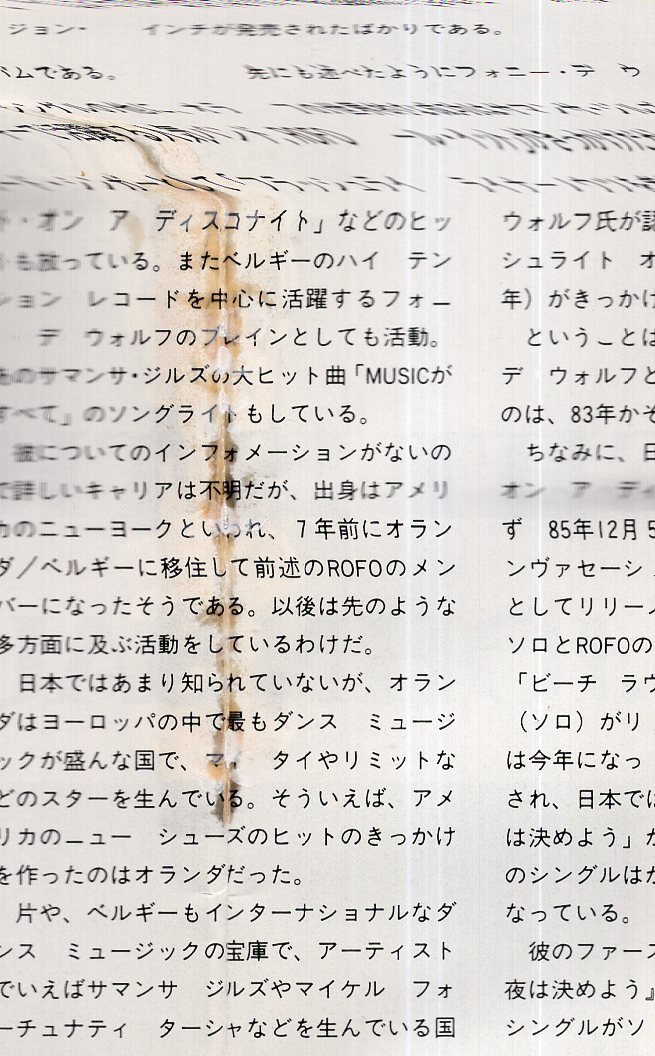 ジョン・　インチが発売されたばかりである。
バムである。　先にも述べたようにフォニー・デ　ウ
ト・オン　ア　ディスコナイト」などのヒッ
も放っている。またベルギーのハイ　テン
ション　レコードを中心に活躍するフォニ
デ　ウォルフのブレインとしても活動。
あのサマンサ・ジルズの大ヒット曲「MUSICが
すべて」のソングライトもしている。
彼についてのインフォメーションがないの
で詳しいキャリアは不明だが、出身はアメリ
カのニューヨークといわれ、7年前にオラン
ダ／ベルギーに移住して前述のROFOのメン
バーになったそうである。以後は先のような
多方面に及ぶ活動をしているわけだ。
日本ではあまり知られていないが、オラン
ダはヨーロッパの中で最もダンス　ミュージ
ックが盛んな国で、マイ　タイやリミットな
どのスターを生んでいる。そういえば、アメ
リカのニュー　シューズのヒットのきっかけ
を作ったのはオランダだった。
片や、ベルギーもインターナショナルなダ
ンス　ミュージックの宝庫で、アーティスト
でいえばサマンサ　ジルズやマイケル　フォ
ーチュナティ　ターシャなどを生んでいる国
ウォルフ氏が認
シュライト　オ
年）がきっかけ
ということは
デ　ウォルフと
のは、83年かそ
ちなみに、日
オン　ア　ディ
ず　85年12月5
ンヴァセーシ
としてリリー
ソロとROFOの
「ビーチ　ラヴ
（ソロ）がリ
は今年になっ
され、日本では
は決めよう」が
のシングルはか
なっている。
彼のファース
夜は決めよう』
シングルがソ